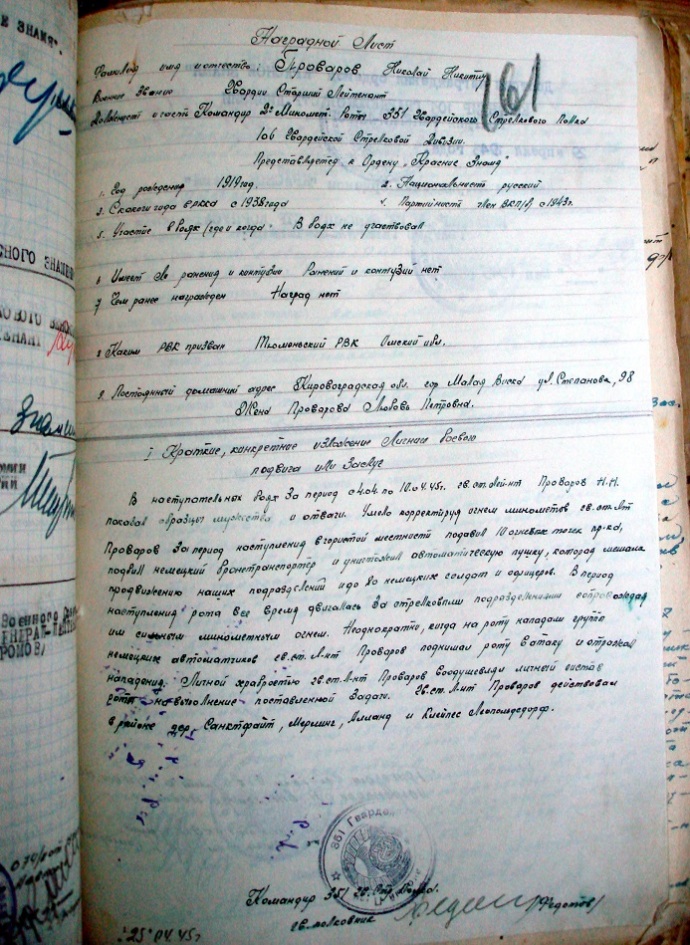 Наградной Лист
161
Фамилия имя и отчество: Проваров Николай Никитич
Военное звание Гвардии Старший Лейтенант
Должность и часть Командир 2й Миномет. Роты 351 Гвардейского Стрелкового Полка
106 Гвардейской Стрелковой Дивизии.
Представляется к Ордену „Красние Знамя"
1. Год рождения 1919 год. 2. Национальность русский
3. С какого года в РККА с 1938 года 4. Партийность член ВКП/б/ с 1943г.
5. Участие в боях (где и когда В боях не участвовал
6 Имеет ли ранения и контузии Ранений и контузий нет
7 Чем ранее награжден Наград нет
8 Каким РВК призван Тюменьский РВК Омский обл.
9. Постоянный домашний адрес Кировоградская обл. гор Малая Виска ул. Степанова, 98
Жена Проварова Любовь Петровна.
I Краткие, конкретное изложение Личнаго боевого
подвига или Заслуг
В наступательных боях За период с 4.04 по 10.04.45г. гв.ст.лей-нт Проваров Н.Н.
показал образцы мужества и отваги. Умело корректируя огнем минометов гв.ст.л-т
Проваров За период наступления в гористой местности подавил 10 огневых точек пр-ка,
подбил немецкий бронетранспортёр и уничтожил автоматическую пушку, которая мешала
продвижению наших подразделений и до 80 немецких солдат и офицеров. В период
наступления рота все время двигалась За стрелковыми подразделениями сопровождая
им сильным минометным огнем. Неоднократно, когда на роту нападали группы
немецких автоматчиков гв.ст.л-нт Проваров поднимал роту в атаку и отражал
нападения. Личной храбростью гв.ст.л-нт Проваров воодушевлял личный состав
роты на выполнение поставленной Задачи. Гв.ст.л-нт Проваров действовал
в районе дер. Санктфайт, Мерлинг, Алланд и Клейпес Леопольдсдорф.
Командир 351 гв. Стр. Полка.
гв. полковник /Федотов/
"25" 04 45г
351 Гвард
Е ЗНАМЯ".
СНОГО ЗНАМЕ
Военного
ГЕНЕРАЛ-ЛЕЙТЕН